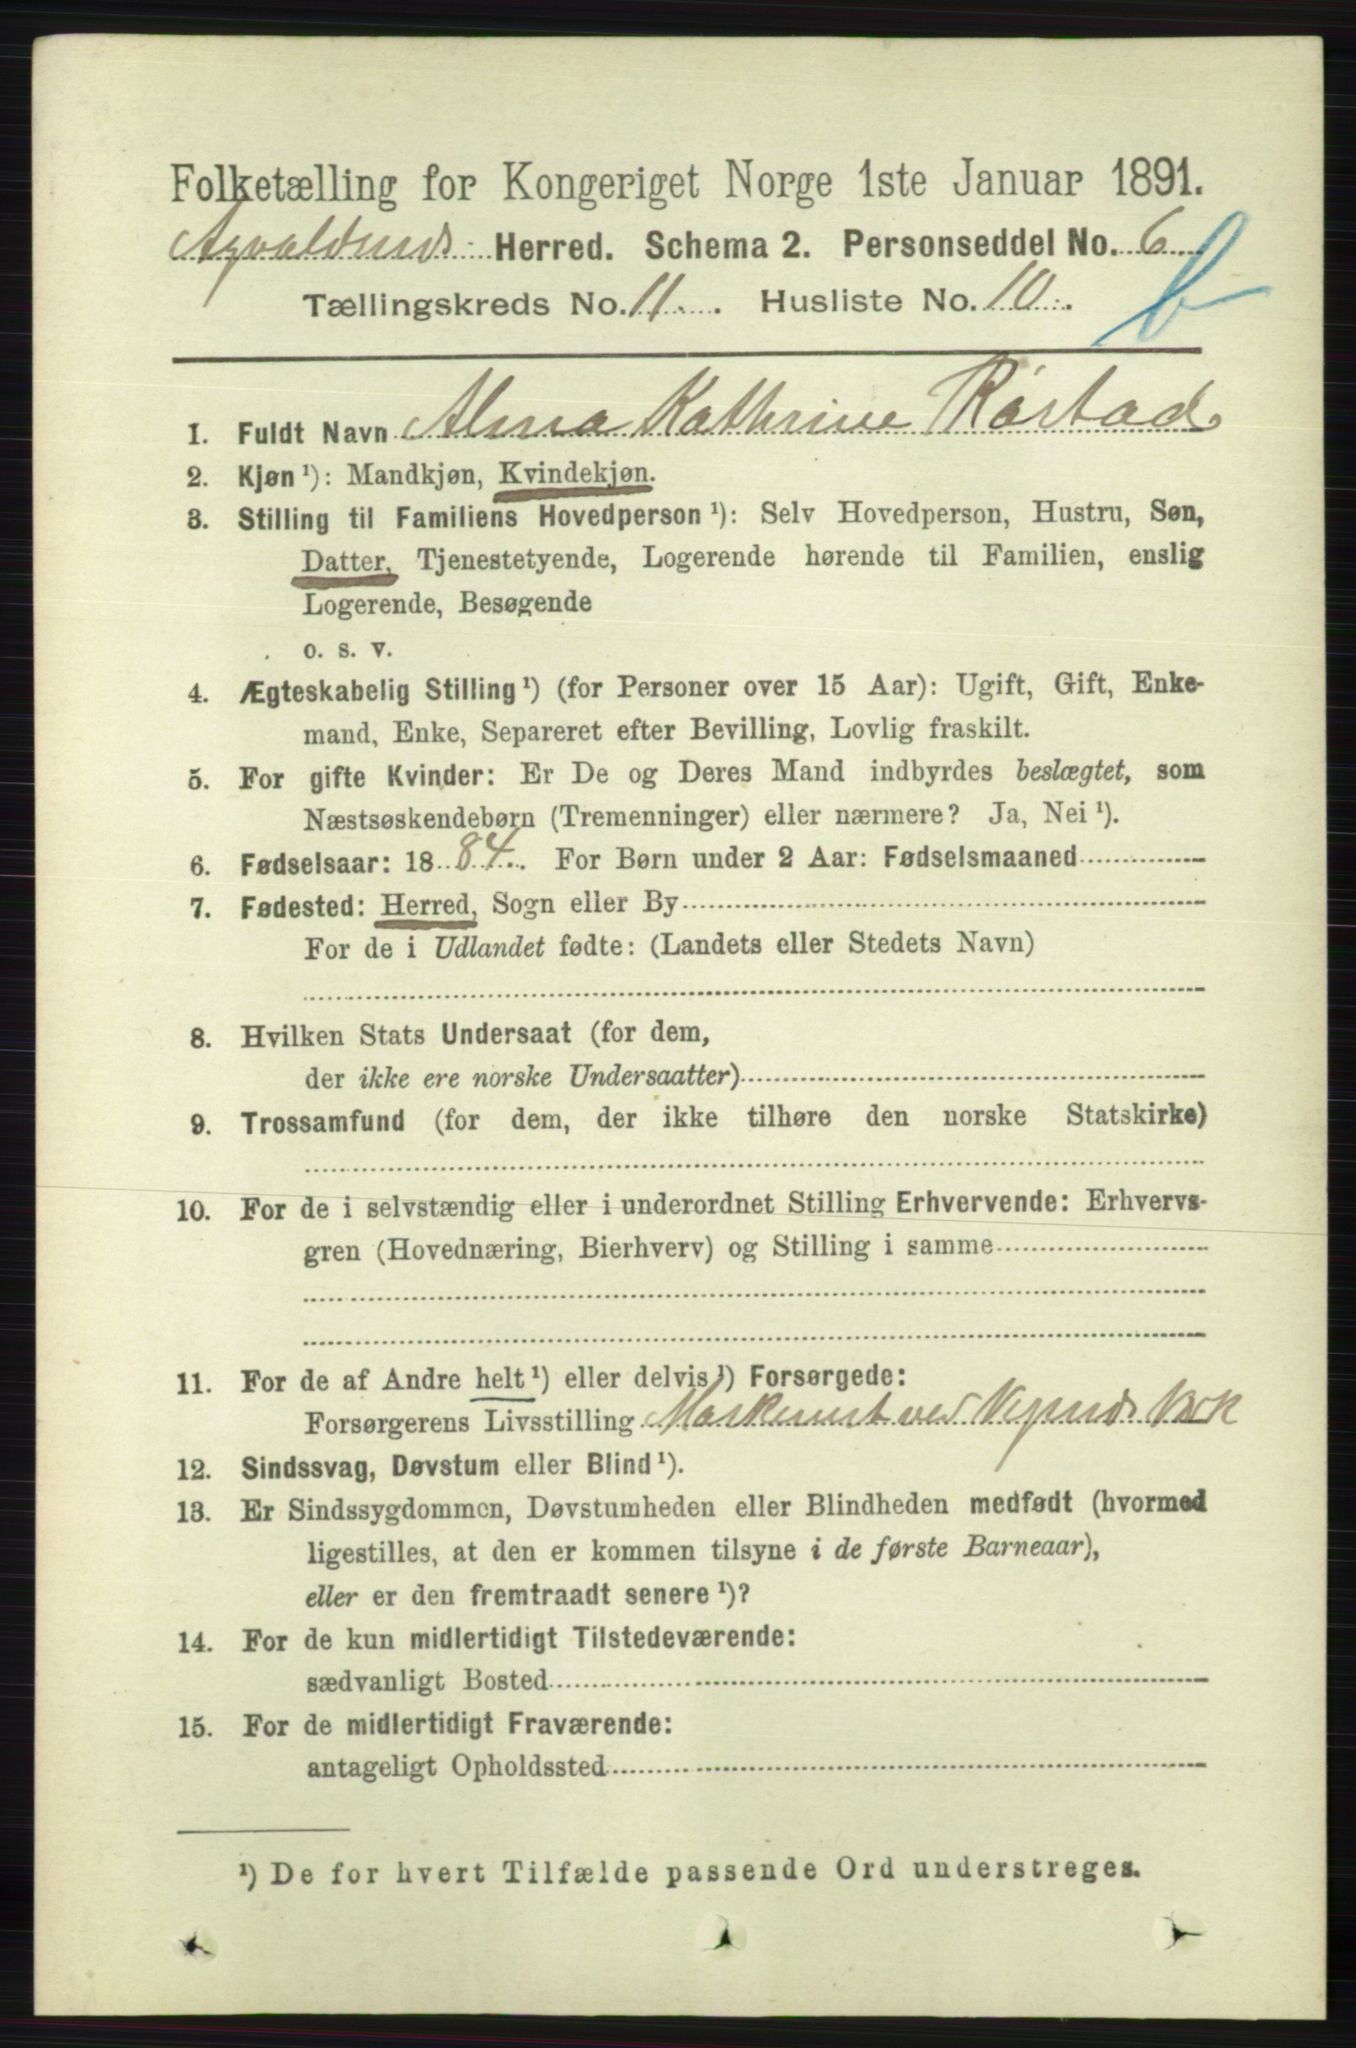 Folketælling for Kongeriget Norge 1ste Januar 1891.
Avaldsnes Herred. Schema 2. Personseddel No. 6
Tællingskreds No. 11. Husliste No. 10. b
1. Fuldt Navn Alma Kathrine Rørstad
2. Kjøn ¹): Mandkjøn, Kvindekjøn.
3. Stilling til Familiens Hovedperson ¹): Selv Hovedperson, Hustru, Søn,
Datter, Tjenestetyende, Logerende hørende til Familien, enslig
Logerende, Besøgende
o. s. v.
4. Ægteskabelig Stilling ¹) (for Personer over 15 Aar): Ugift, Gift, Enke-
mand, Enke, Separeret efter Bevilling, Lovlig fraskilt.
5. For gifte Kvinder: Er De og Deres Mand indbyrdes beslægtet, som
Næstsøskendebørn (Tremenninger) eller nærmere? Ja, Nei ¹).
6. Fødselsaar: 1884. For Børn under 2 Aar: Fødselsmaaned
7. Fødested: Herred, Sogn eller By
For de i Udlandet fødte: (Landets eller Stedets Navn)
8. Hvilken Stats Undersaat (for dem,
der ikke ere norske Undersaatter)
9. Trossamfund (for dem, der ikke tilhøre den norske Statskirke)
10. For de i selvstændig eller i underordnet Stilling Erhvervende: Erhvervs-
gren (Hovednæring, Bierhverv) og Stilling i samme
11. For de af Andre helt ¹) eller delvis ¹) Forsørgede:
Forsørgerens Livsstilling Maskinist ved Vigsnes Værk
12. Sindssvag, Døvstum eller Blind ¹).
13. Er Sindssygdommen, Døvstumheden eller Blindheden medfødt (hvormed
ligestilles, at den er kommen tilsyne i de første Barneaar),
eller er den fremtraadt senere ¹)?
14. For de kun midlertidigt Tilstedeværende:
sædvanligt Bosted
15. For de midlertidigt Fraværende:
antageligt Opholdssted
¹) De for hvert Tilfælde passende Ord understreges.